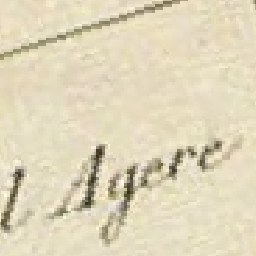 l Agere